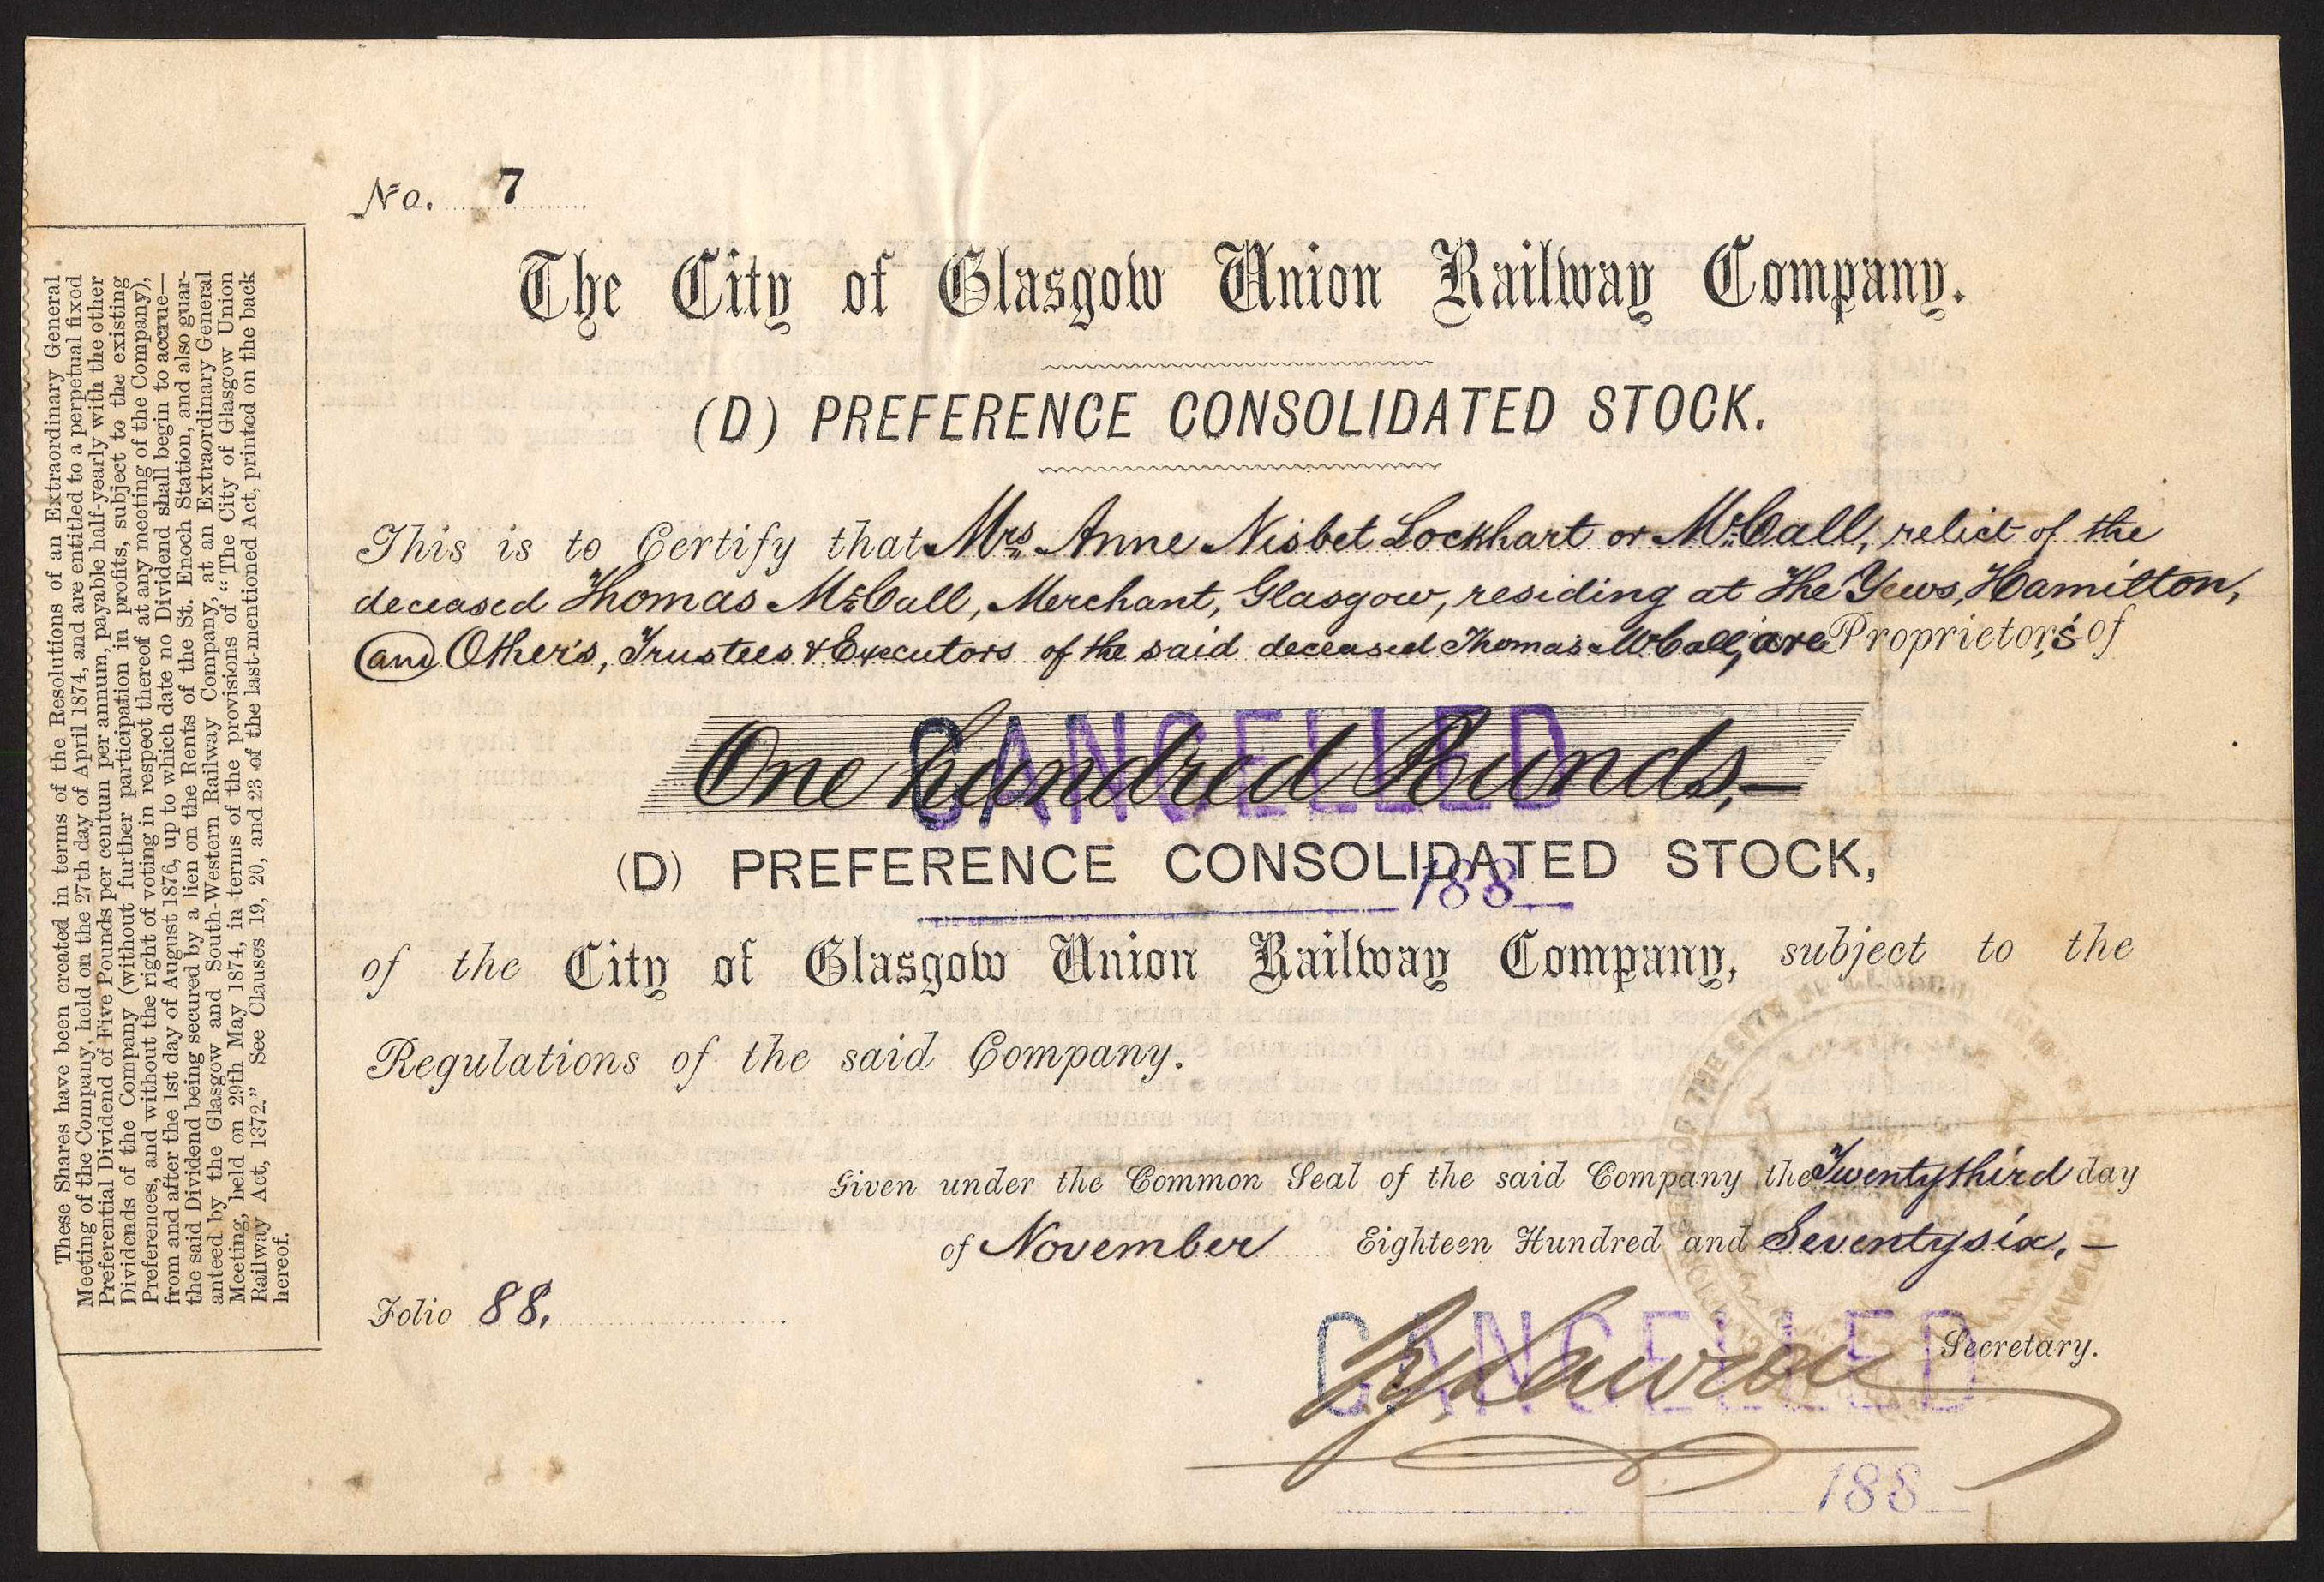 No. 7
The City of Glasgow Union Railway Company.
(D) PREFERENCE CONSOLIDATED STOCK.
This is to Certify that Mrs. Anne Nisbet Lockhart or McCall, relict of the
deceased Thomas McCall, Merchant, Glasgow, residing at The Yews, Hamilton,
and Others, Trustees & Executors of the said deceased Thomas McCall, are Proprietors of
One hundred Pounds,—
CANCELLED
(D) PREFERENCE CONSOLIDATED STOCK,
188
of the City of Glasgow Union Railway Company, subject to the
Regulations of the said Company.
Given under the Common Seal of the said Company the Twentythird day
of November Eighteen Hundred and Seventysix,—
Folio 88,
CANCELLED
Secretary.
188
These Shares have been created in terms of the Resolutions of an Extraordinary General
Meeting of the Company, held on the 27th day of April 1874, and are entitled to a perpetual fixed
Preferential Dividend of Five Pounds per centum per annum, payable half-yearly with the other
Dividends of the Company (without further participation in profits, subject to the existing
Preferences, and without the right of voting in respect thereof at any meeting of the Company),
from and after the 1st day of August 1876, up to which date no Dividend shall begin to accrue—
the said Dividend being secured by a lien on the Rents of the St. Enoch Station, and also guar-
anteed by the Glasgow and South-Western Railway Company, at an Extraordinary General
Meeting, held on 29th May 1874, in terms of the provisions of "The City of Glasgow Union
Railway Act, 1872." See Clauses 19, 20, and 23 of the last-mentioned Act, printed on the back
hereof.